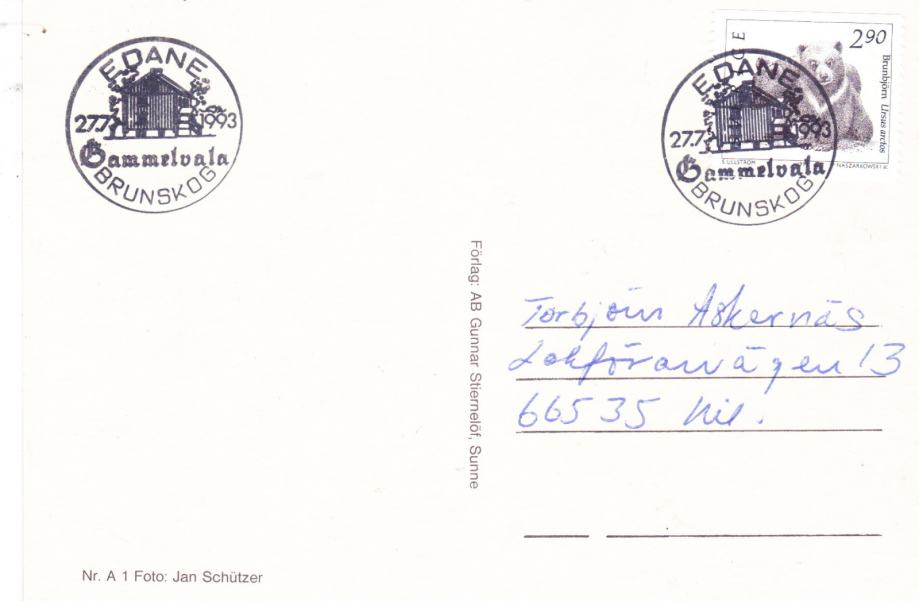 EDANE
27.7 1993
Gammelvala
BRUNSKOG
SVERIGE
2.90
Brunbjörn Ursus arctos
S. ULLSTRÖM NASZARKOWSKI SC
EDANE
27.7 1993
Gammelvala
BRUNSKOG
Förlag: AB Gunnar Stiernelöf, Sunne
Torbjörn Askernäs
Lokförarvägen 13
665 35 Kil.
Nr. A 1 Foto: Jan Schützer